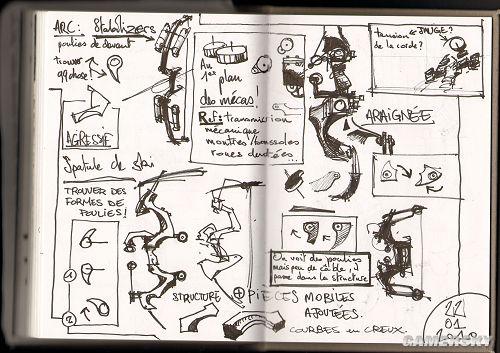 ARC: Stabilizers
poulies de devant
trouver
qq chose!
AGRESSIF
Spatule de ski
TROUVER DES
FORMES DE
POULIES!
1
2
Au
1er plan
des mécas!
Ref: transmission
mécanique
montres/
roues dentées...
tension
de la corde?
JAUGE?
ARAIGNÉE
On voit des poulies
mais peu de câble, il
passe dans la structure
STRUCTURE
+ PIÈCES MOBILES
AJOUTÉES.
COURBES en CREUX.
22
01
2010
GAMERSKY